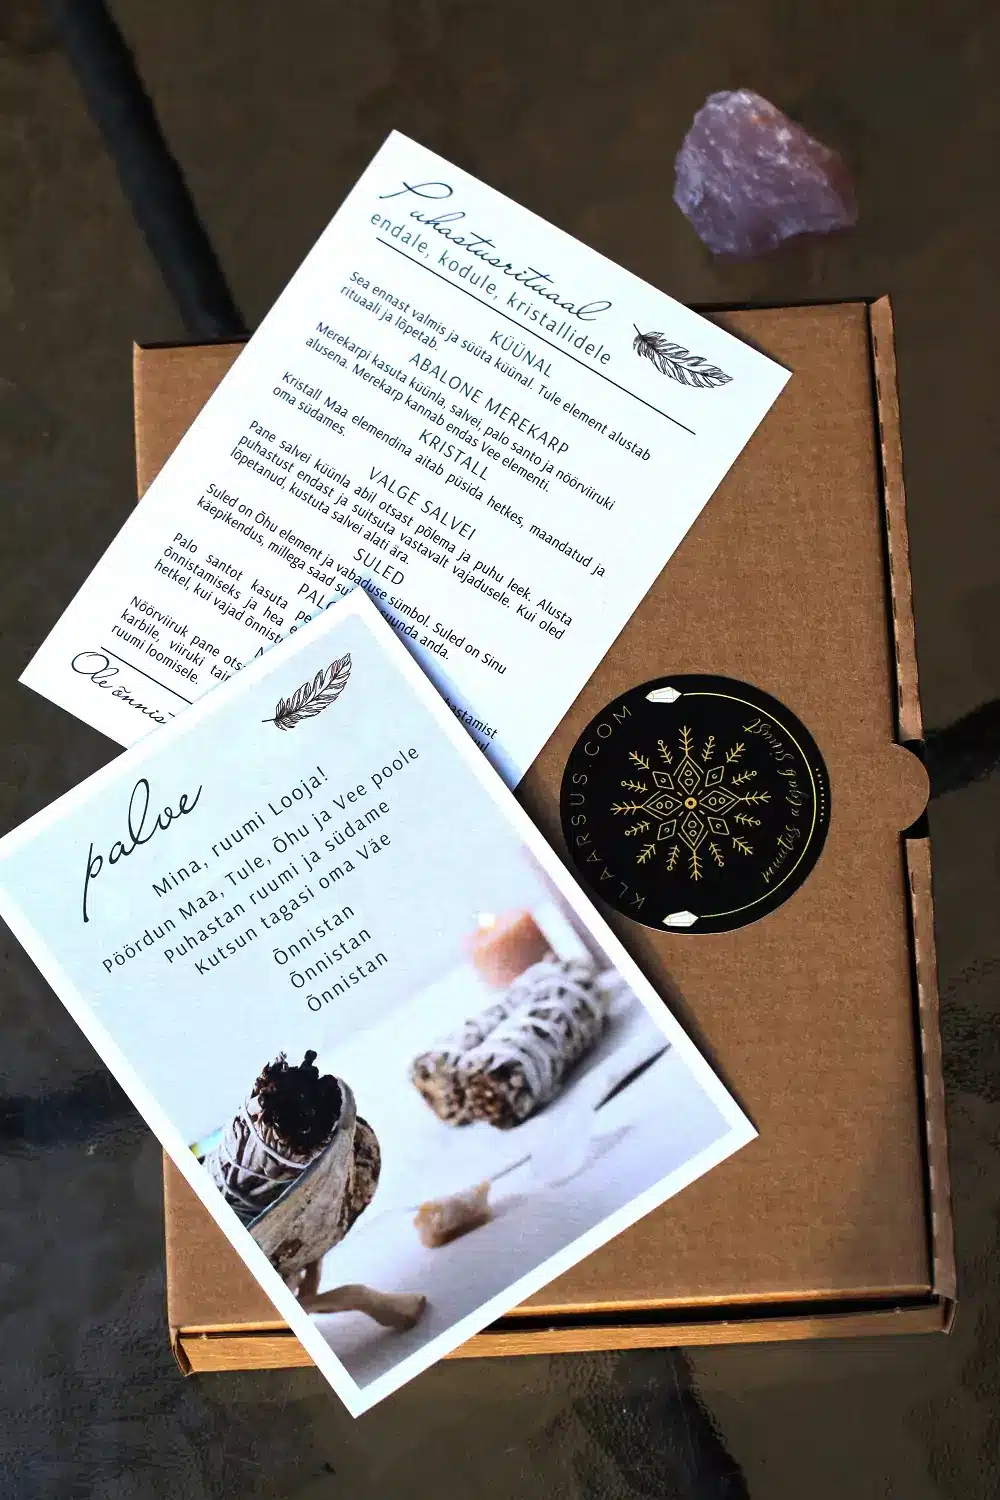 Puhastusrituaal
endale, kodule, kristallidele
KÜÜNAL
Sea ennast valmis ja süüta küünal. Tule element alustab
rituaali ja lõpetab.
ABALONE MEREKARP
Merekarpi kasuta küünla, salvei, palo santo ja nöörviiruki
alusena. Merekarp kannab endas Vee elementi.
KRISTALL
Kristall Maa elemendina aitab püsida hetkes, maandatud ja
oma südames.
VALGE SALVEI
Pane salvei küünla abil otsast põlema ja puhu leek. Alusta
puhastust endast ja suitsuta vastavalt vajadusele. Kui oled
lõpetanud, kustuta salvei alati ära.
SULED
Suled on Õhu element ja vabaduse sümbol. Suled on Sinu
käepikendus, millega saad suunda anda.
Palo santot kasuta
õnnistamiseks ja hea
hetkel, kui vajad
Nöörviiruk pane
karbile, viiruki
ruumi loomisele.
Ole
palve
Mina, ruumi Looja!
Pöördun Maa, Tule, Õhu ja Vee poole
Puhastan ruumi ja südame
Kutsun tagasi oma Väe
Õnnistan
Õnnistan
Õnnistan
KLAARSUS.COM
muutus algab sinust